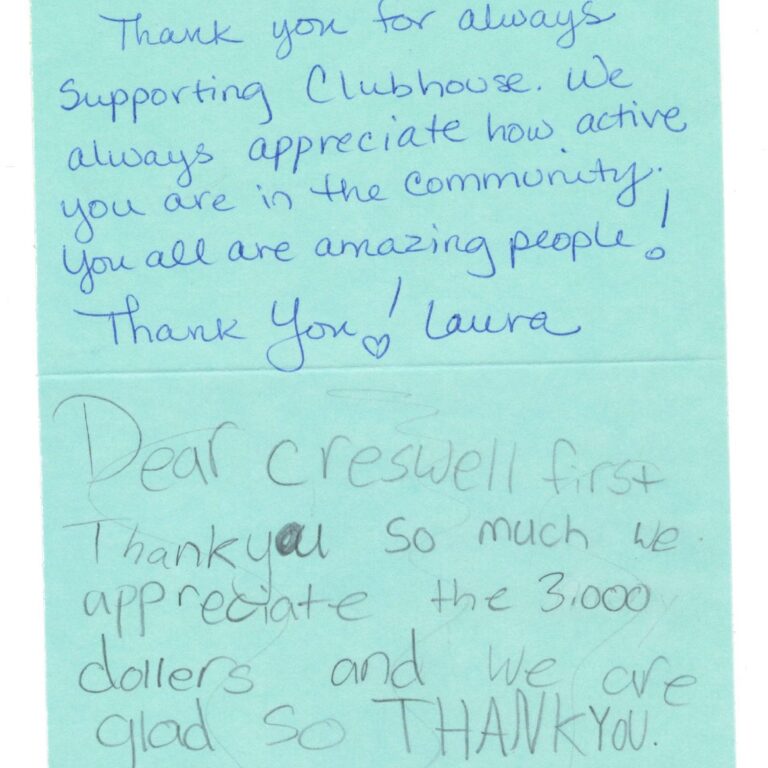 Thank you for always
Supporting Clubhouse. We
always appreciate how active
you are in the community.
You all are amazing people!
Thank You! Laura
Dear creswell first
Thankyou so much we
appreciate the 3.000
dollers and we are
glad so THANKYOU.